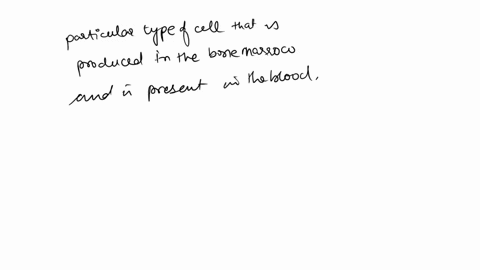 particular type of cell that is
produced in the bone marrow
and is present in the blood.